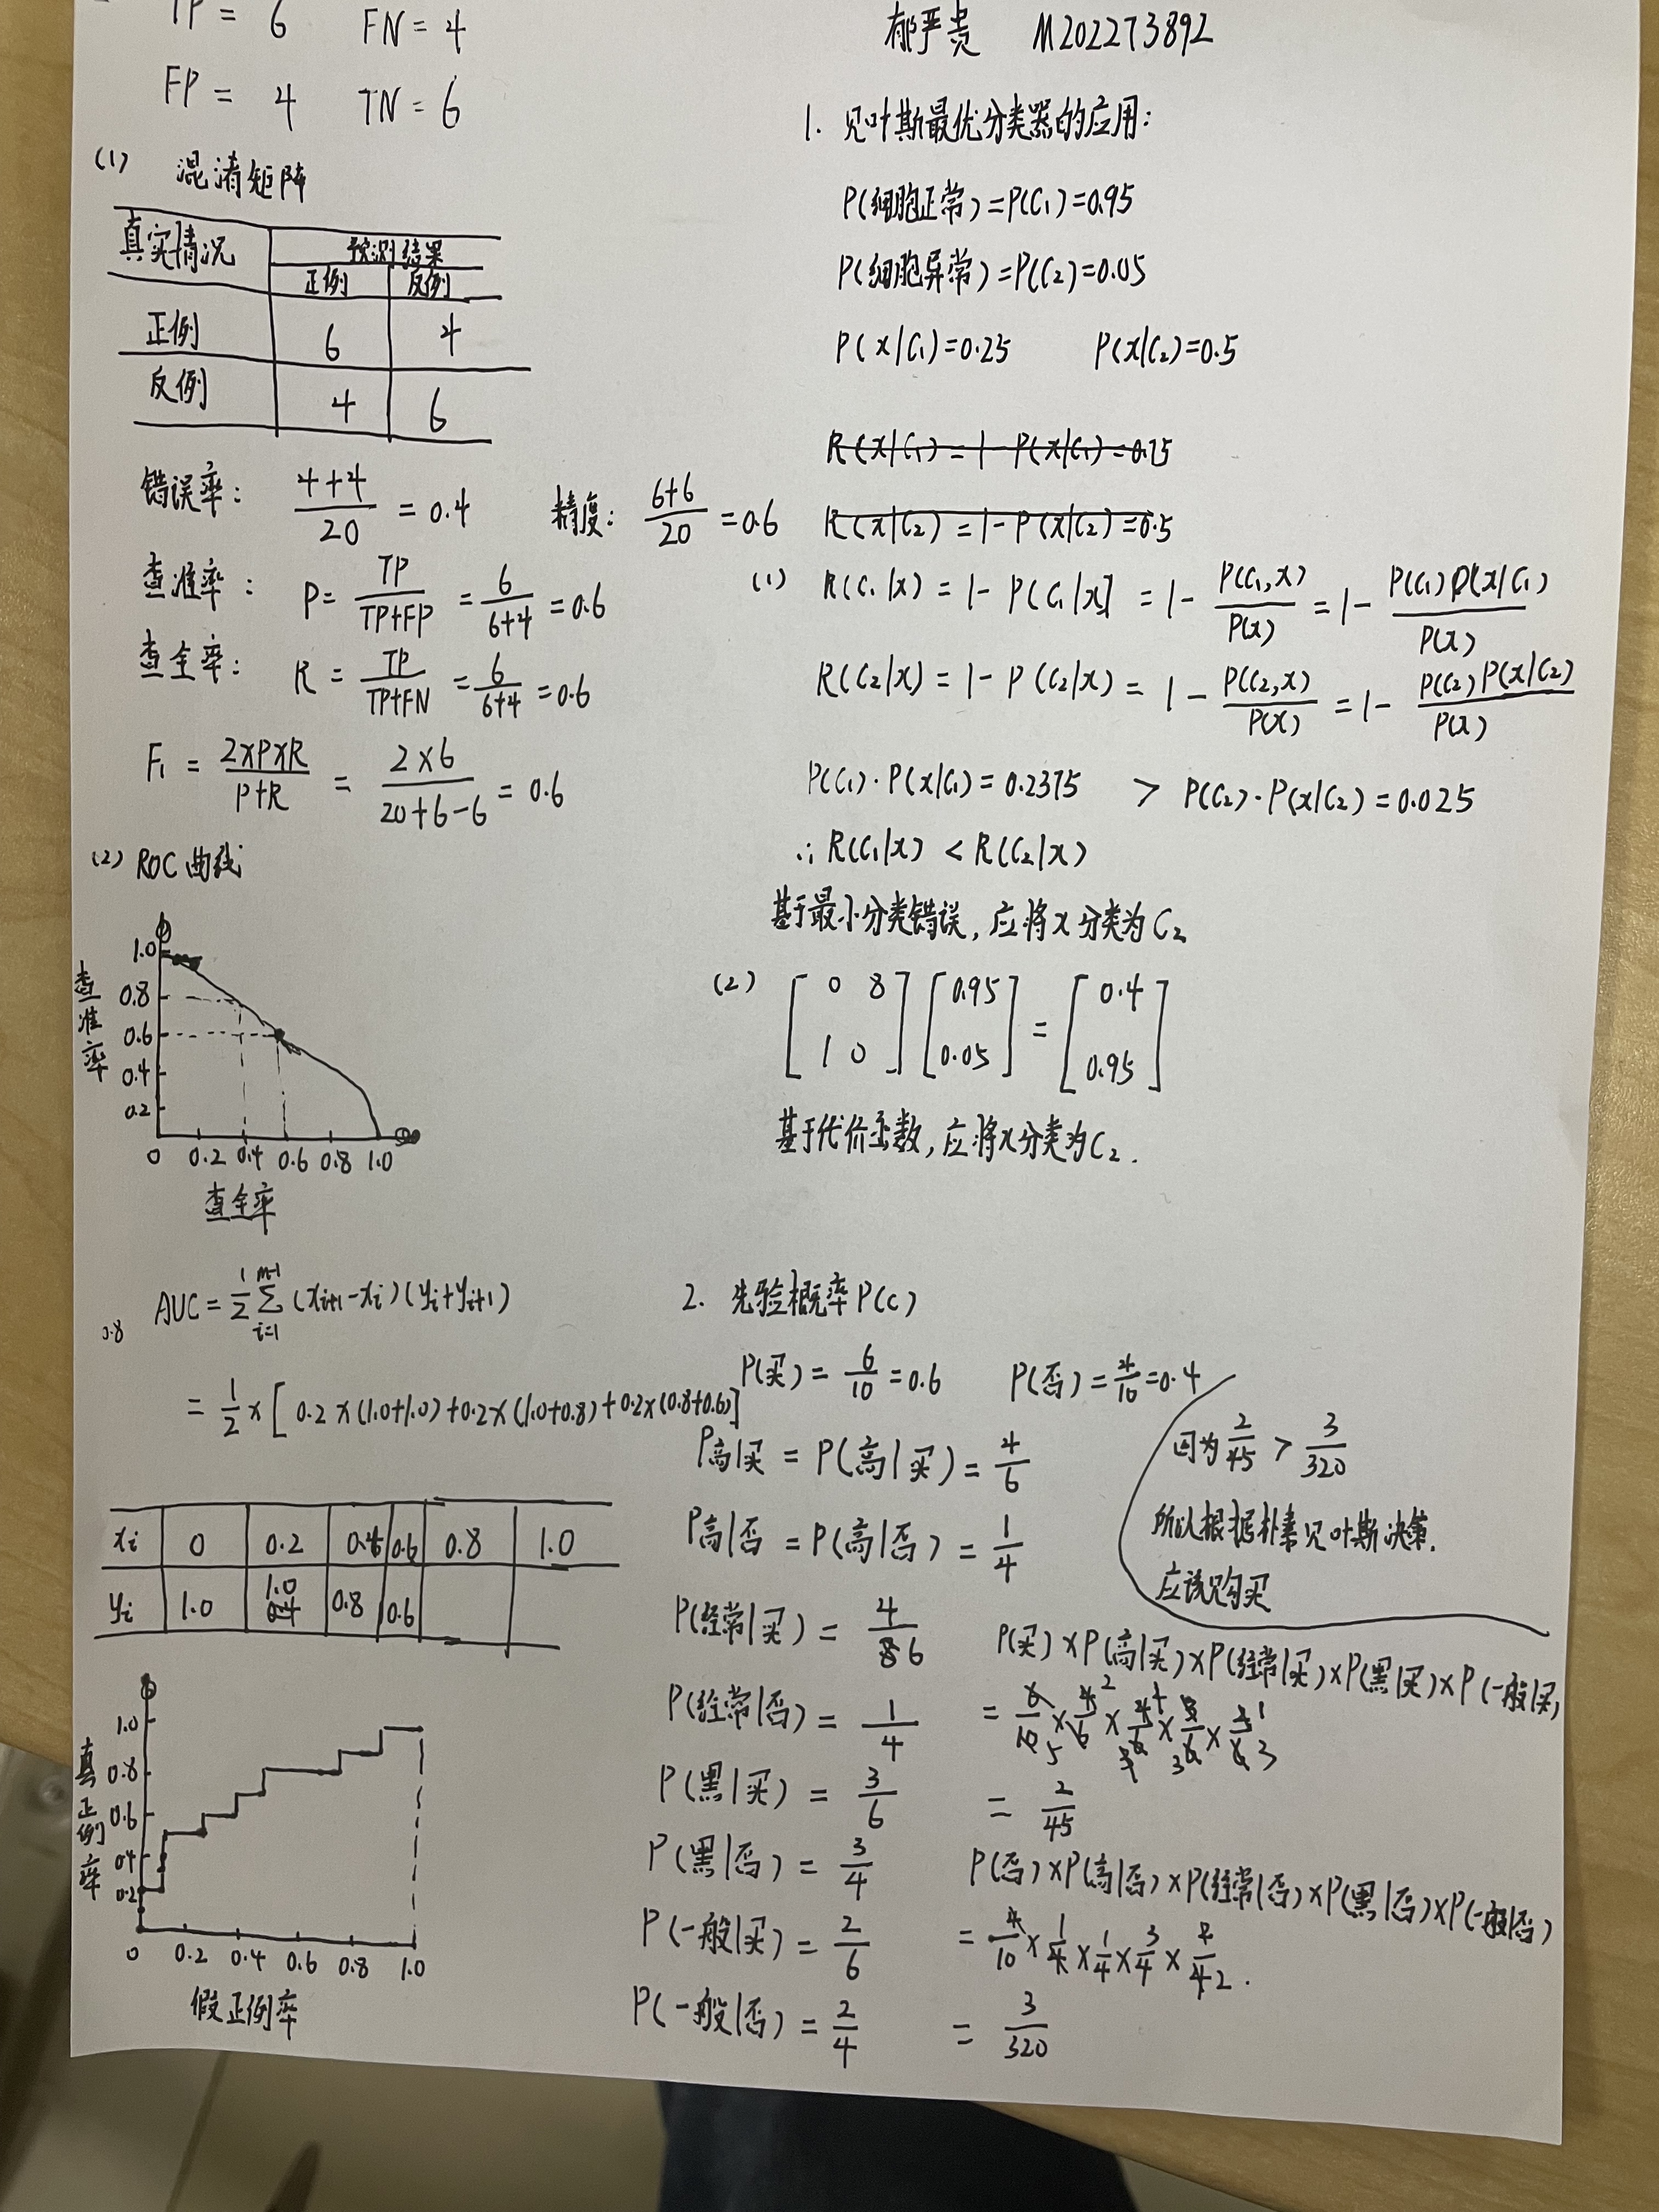 TP = 6 FN = 4
FP = 4 TN = 6
(1) 混淆矩阵
真实情况 预测结果
正例 反例
正例 6 4
反例 4 6
错误率: (4+4)/20 = 0.4 精度: (6+6)/20 = 0.6
查准率: P = TP/(TP+FP) = 6/(6+4) = 0.6
查全率: R = TP/(TP+FN) = 6/(6+4) = 0.6
F₁ = (2×P×R)/(P+R) = (2×6)/(20+6-6) = 0.6
(2) ROC 曲线
查准率
1.0
0.8
0.6
0.4
0.2
0 0.2 0.4 0.6 0.8 1.0
查全率
AUC = 1/2 Σ_{i=1}^{m-1} (x_{i+1} - x_i)(y_i + y_{i+1})
0.8
= 1/2 × [0.2×(1.0+1.0)+0.2×(1.0+0.8)+0.2×(0.8+0.6)]
x_i 0 0.2 0.4 0.6 0.8 1.0
y_i 1.0 1.0 0.8 0.6
真正例率
1.0
0.8
0.6
0.4
0.2
0 0.2 0.4 0.6 0.8 1.0
假正例率
严贵 M202273892
1. 贝叶斯最优分类器的应用:
P(细胞正常)=P(C₁)=0.95
P(细胞异常)=P(C₂)=0.05
P(x|C₁)=0.25 P(x|C₂)=0.5
R(x|C₁)=1-P(x|C₁)=0.75
R(x|C₂)=1-P(x|C₂)=0.5
(1) R(C₁|x) = 1-P(C₁|x) = 1-P(C₁,x)/P(x) = 1-P(C₁)P(x|C₁)/P(x)
R(C₂|x) = 1-P(C₂|x) = 1-P(C₂,x)/P(x) = 1-P(C₂)P(x|C₂)/P(x)
P(C₁)·P(x|C₁)=0.2375 > P(C₂)·P(x|C₂)=0.025
∴ R(C₁|x) < R(C₂|x)
基于最小分类错误,应将x分类为C₂
(2) [0 8; 1 0] [0.95; 0.05] = [0.4; 0.95]
基于代价函数,应将x分类为C₂.
2. 先验概率P(c)
P(买) = 6/10 = 0.6 P(否) = 4/10 = 0.4
P高|买 = P(高|买) = 4/6
P高|否 = P(高|否) = 1/4
P(经常|买) = 4/6
P(经常|否) = 1/4
P(黑|买) = 3/6
P(黑|否) = 3/4
P(一般|买) = 2/6
P(一般|否) = 2/4
因为 2/45 > 3/320
所以根据朴素贝叶斯决策.
应该购买
P(买)×P(高|买)×P(经常|买)×P(黑|买)×P(一般|买)
= 6/10 × 4/6 × 4/6 × 3/6 × 2/6
= 2/45
P(否)×P(高|否)×P(经常|否)×P(黑|否)×P(一般|否)
= 4/10 × 1/4 × 1/4 × 3/4 × 2/4.
= 3/320